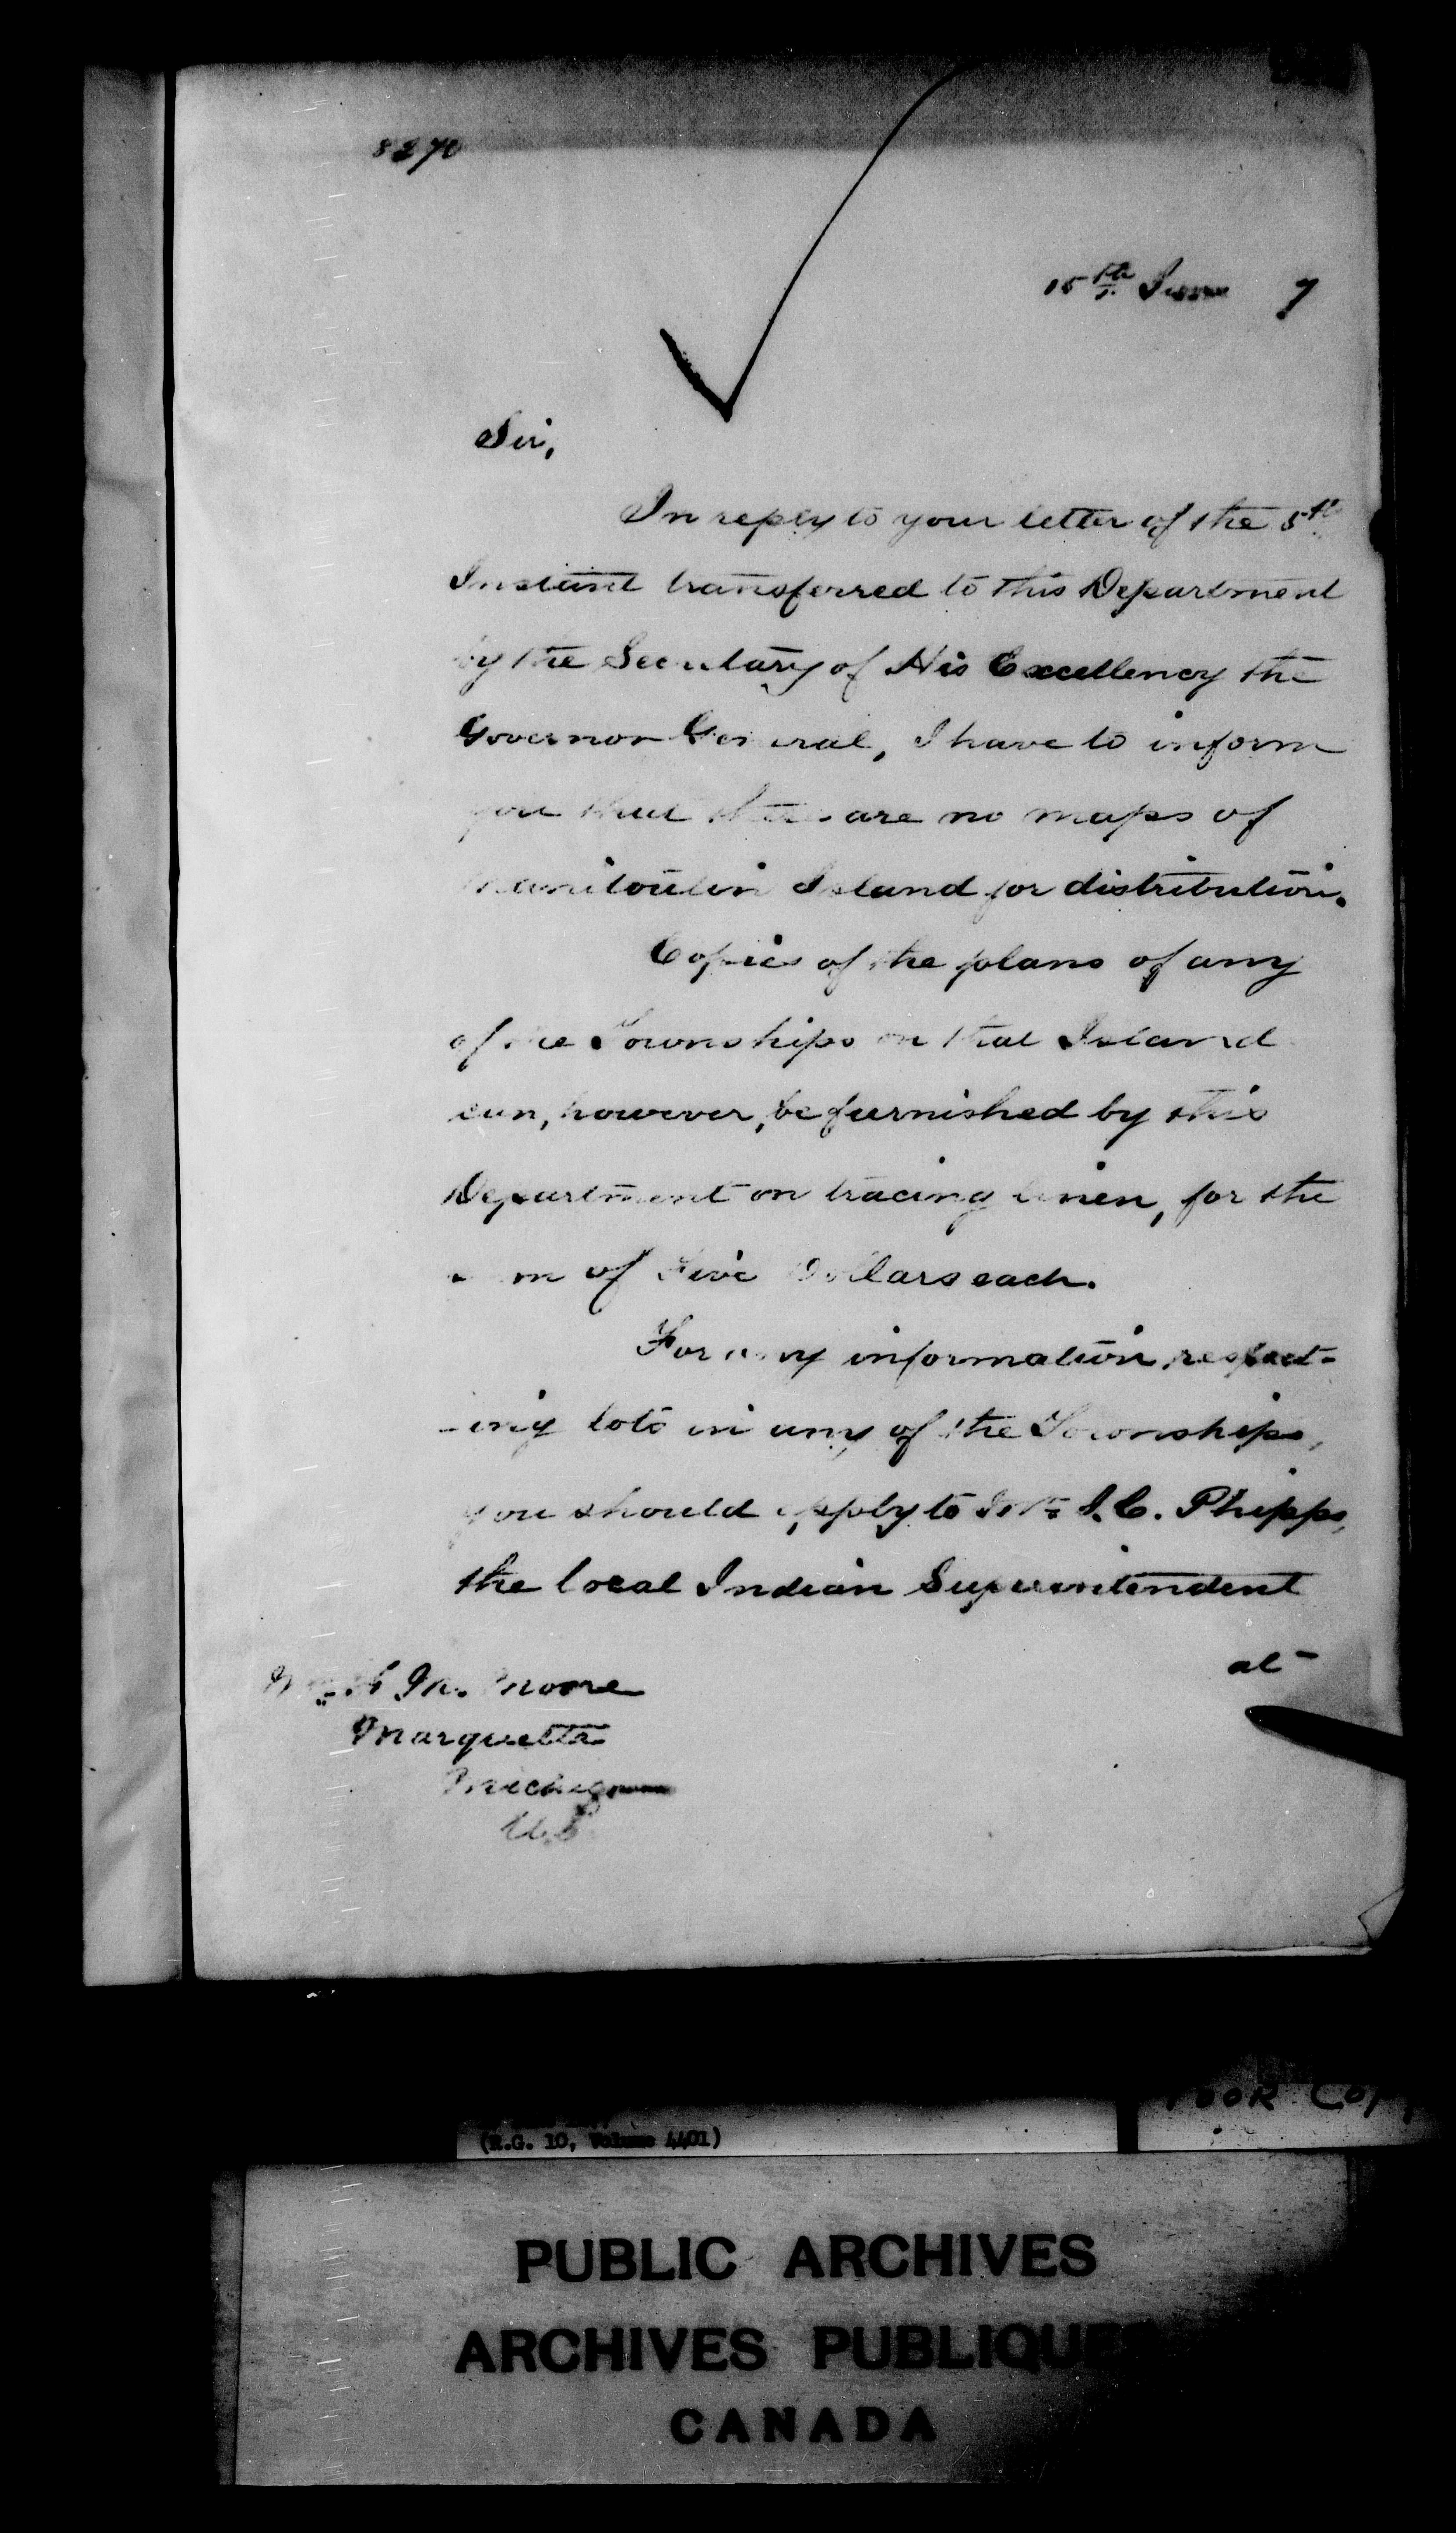 8270
15th June 7
Sir,
In reply to your letter of the 5th
Instant transferred to this Department
by the Secretary of His Excellency the
Governor General, I have to inform
you that there are no maps of
Manitoulin Island for distribution.
Copies of the plans of any
of the Townships on that Island
can, however, be furnished by this
Department on tracing linen, for the
sum of Five Dollars each.
For any information respect-
-ing lots in any of the Townships,
you should apply to Mr. J.C. Phipps,
the local Indian Superintendent
at
Moore
Marquette
Michigan
U.S.
POOR COPY
(R.G. 10, Volume 4401)
PUBLIC ARCHIVES
ARCHIVES PUBLIQUES
CANADA